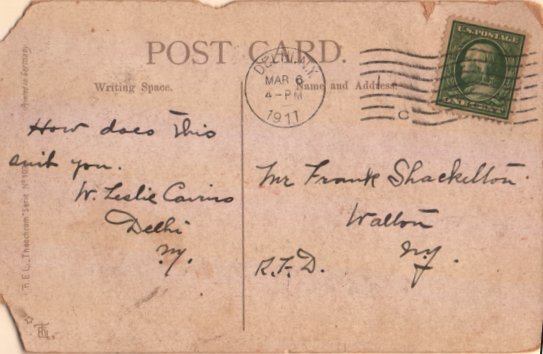 POST CARD.
Writing Space.
Name and Address
DELHI, N.Y.
MAR 6
4-PM
1911
C
U.S. POSTAGE
ONE CENT
How does this
suit you.
W. Leslie Cairns
Delhi
N.Y.
Mr Frank Shackelton.
Walton
N.Y.
R.F.D.
"Theochrom" Serie No